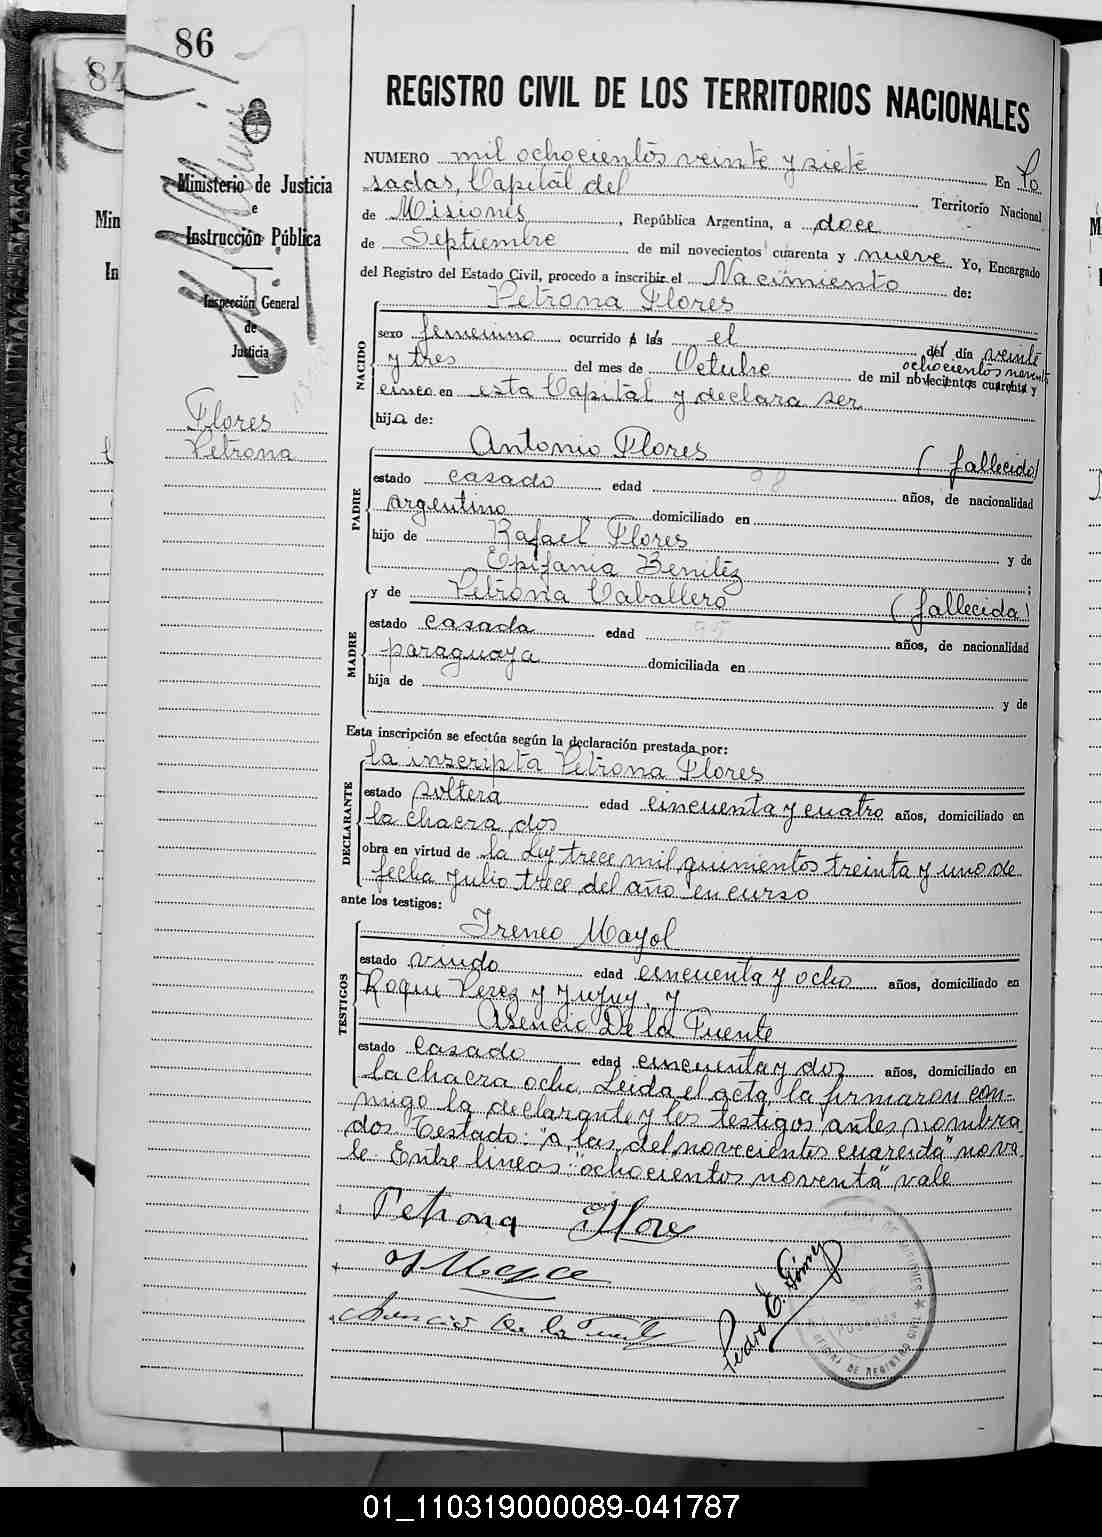 86
84
REGISTRO CIVIL DE LOS TERRITORIOS NACIONALES
Ministerio de Justicia
e
Instrucción Pública
Inspección General
de
Justicia
Flores
Petrona
Min
In
M
NUMERO mil ochocientos veinte y siete En Po
sadas, Capital del Territorio Nacional
de Misiones, República Argentina, a doce
de Septiembre de mil novecientos cuarenta y nueve Yo, Encargado
del Registro del Estado Civil, procedo a inscribir el Nacimiento de:
NACIDO
Petrona Flores
sexo femenino ocurrido a las el del día veinte
y tres del mes de Octubre ochocientos noventa de mil novecientos cuarenta y
cinco en esta Capital y declara ser
hija de:
PADRE
Antonio Flores (fallecido)
estado casado edad 98 años, de nacionalidad
argentino domiciliado en
hijo de Rafael Flores y de
Epifania Benitez ;
MADRE
y de Petrona Caballero (fallecida)
estado casada edad 95 años, de nacionalidad
paraguaya domiciliada en
hija de y de
Esta inscripción se efectúa según la declaración prestada por:
DECLARANTE
la inscripta Petrona Flores
estado soltera edad cincuenta y cuatro años, domiciliado en
la chacra dos
obra en virtud de la Ley trece mil quinientos treinta y uno de
fecha Julio trece del año en curso
ante los testigos:
TESTIGOS
Ireneo Mayol
estado viudo edad cincuenta y ocho años, domiciliado en
Roque Perez y Jujuy, y
Asencio De la Puente
estado casado edad cincuenta y dos años, domiciliado en
la chacra ocho. Leida el acta, la firmaron con-
migo la declarante y los testigos antes nombra
dos Testado: "a las del novecientos cuarenta" no va
le Entre lineas: "ochocientos noventa" vale
Petrona Flores
Asencio De la Puente
Pedro E. Gómez
POSADAS
01_110319000089-041787